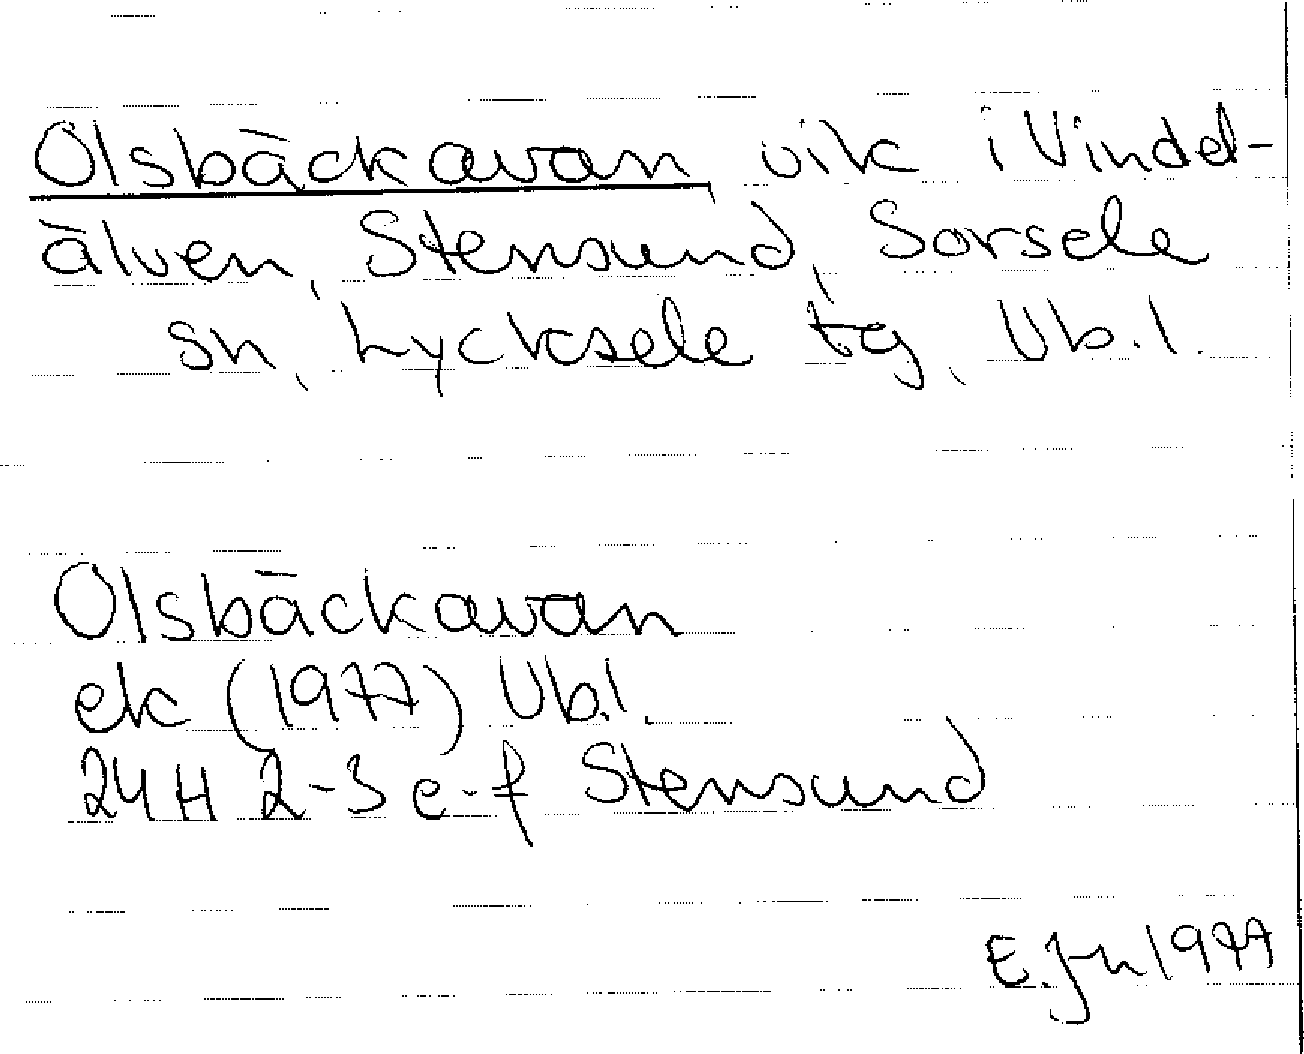 Olsbäckavan, vik i Vindel-
älven, Stensund, Sorsele
sn, Lycksele tg, Vb.l.
Olsbäckavan
ek (1977) Vb.l.
24H 2-3 e-f Stensund
E. Jn 1977